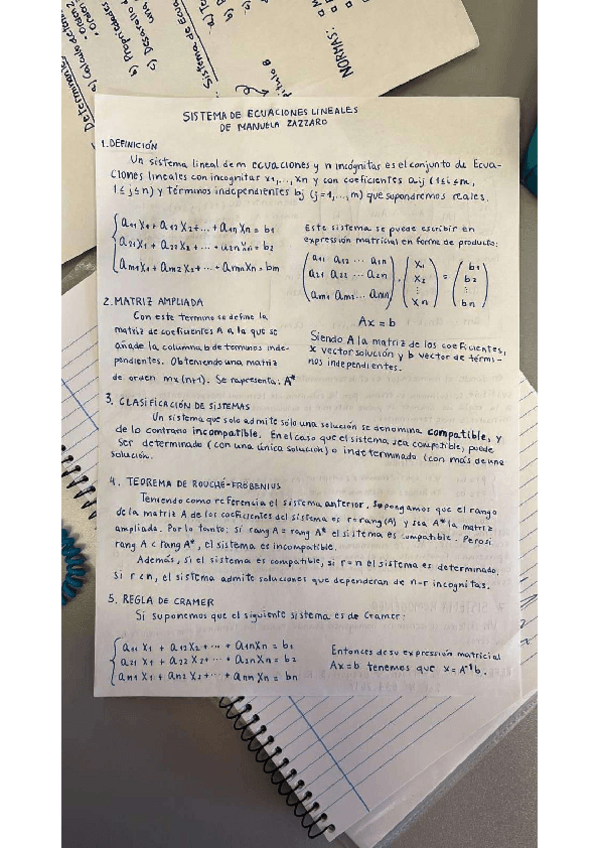 Determinantes
a) Cálculo
• Orden 2
b) Propiedades
c) Desarrollo
una
Sistema de Ecua
a)
b)
c)
NORMAS:
SISTEMA DE ECUACIONES LINEALES
DE MANUELA ZAZZARO
1. DEFINICIÓN
Un sistema lineal de m ecuaciones y n incógnitas es el conjunto de Ecua-
ciones lineales con incognitas x1,..., xn y con coeficientes aij (1≤i≤m,
1≤j≤n) y términos independientes bj (j=1,...,m) que supondremos reales.
a11 x1 + a12 x2 + ... + a1n xn = b1
a21 x1 + a22 x2 + ... + a2n xn = b2
am1 x1 + am2 x2 + ... + amn xn = bm
Este sistema se puede escribir en
expresión matricial en forma de producto:
(a11 a12 ... a1n) (x1) (b1)
(a21 a22 ... a2n) . (x2) = (b2)
(am1 am2 ... amn) (⋮ xn) (⋮ bn)
Ax = b
Siendo A la matriz de los coeficientes,
x vector solución y b véctor de térmi-
nos independientes.
2. MATRIZ AMPLIADA
Con este termino se define la
matriz de coeficientes A a la que se
añade la columna b de terminos inde-
pendientes. Obteniendo una matriz
de orden mx(n+1). Se representa: A*
3. CLASIFICACIÓN DE SISTEMAS
Un sistema que solo admite sólo una solución se denomina compatible, y
de lo contrario incompatible. En el caso que el sistema sea compatible, puede
ser determinado (con una única solución) o indeterminado (con más de una
solución.
4. TEOREMA DE ROUCHÉ-FRÖBENIUS
Teniendo como referencia el sistema anterior. Supongamos que el rango
de la matriz A de los coeficientes del sistema es r=rang(A) y sea A* la matriz
ampliada. Por lo tanto: si rang A = rang A* el sistema es compatible. Pero si
rang A < rang A*, el sistema es incompatible.
Además, si el sistema es compatible, si r = n el sistema es determinado.
Si r < n, el sistema admite soluciones que dependeran de n-r incognitas.
5. REGLA DE CRAMER
Si suponemos que el siguiente sistema es de Cramer:
a11 x1 + a12 x2 + ... + a1n xn = b1
a21 x1 + a22 x2 + ... + a2n xn = b2
an1 x1 + an2 x2 + ... + ann xn = bn
Entonces de su expresión matricial
Ax=b tenemos que x = A⁻¹b.